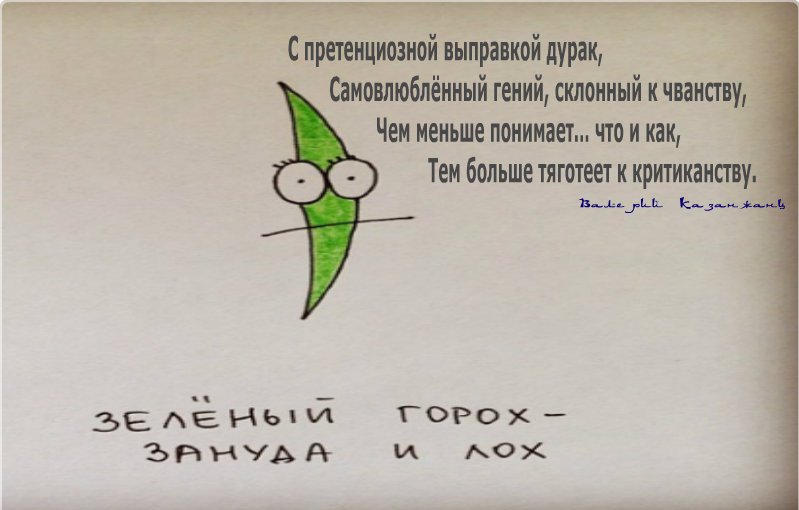 С претенциозной выправкой дурак,
Самовлюблённый гений, склонный к чванству,
Чем меньше понимает... что и как,
Тем больше тяготеет к критиканству.
Валерий Казанжанц
ЗЕЛЁНЫЙ ГОРОХ –
ЗАНУДА И ЛОХ